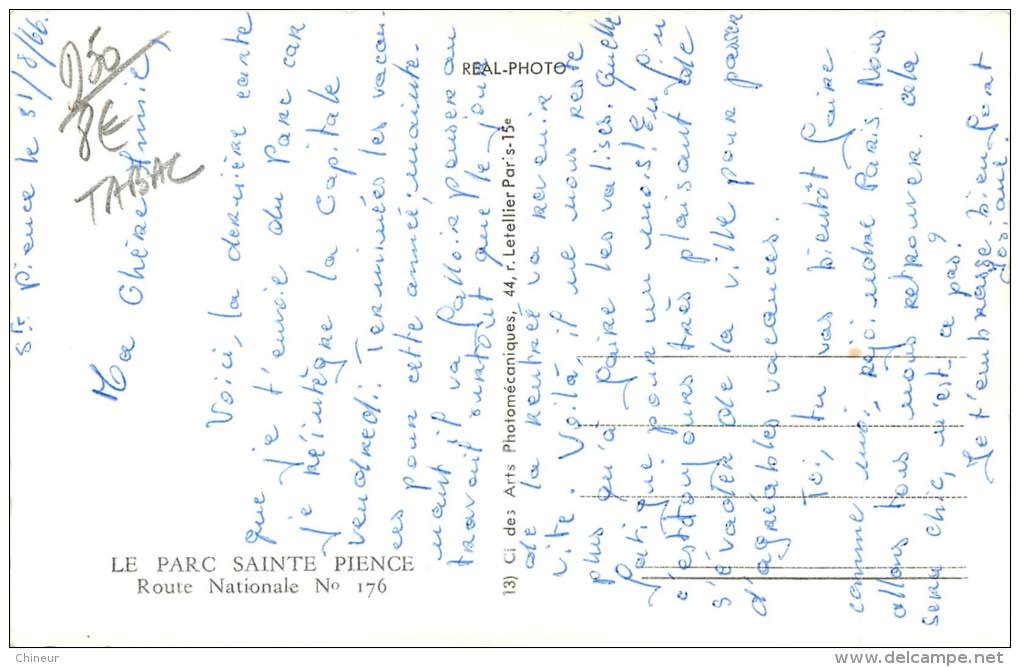 Ste Pience le 31/8/66.
Ma Chère Annie,
Voici, la dernière carte
que je t'envoie du Parc car
je réintègre la Capitale
vendredi. Terminées les vacan-
ces pour cette année; mainte-
nant il va falloir penser au
travail surtout que le jour
de la rentrée va revenir
vite. Voilà, il ne nous reste
plus qu'à faire les valises. Quelle
fatigue pour un mois! Enfin
c'est toujours très plaisant de
s'évader de la ville pour passer
d'agréables vacances.
Toi, tu vas bientôt faire
comme moi, rejoindre Paris. Nous
allons tous nous retrouver. Cela
sera chic, n'est-ce pas?
Je t'embrasse bien fort
350
8€
TABAC
REAL-PHOTO
13) Ci des Arts Photomécaniques, 44, r. Letellier Paris-15e
LE PARC SAINTE PIENCE
Route Nationale No 176
Chineur
www.delcampe.net